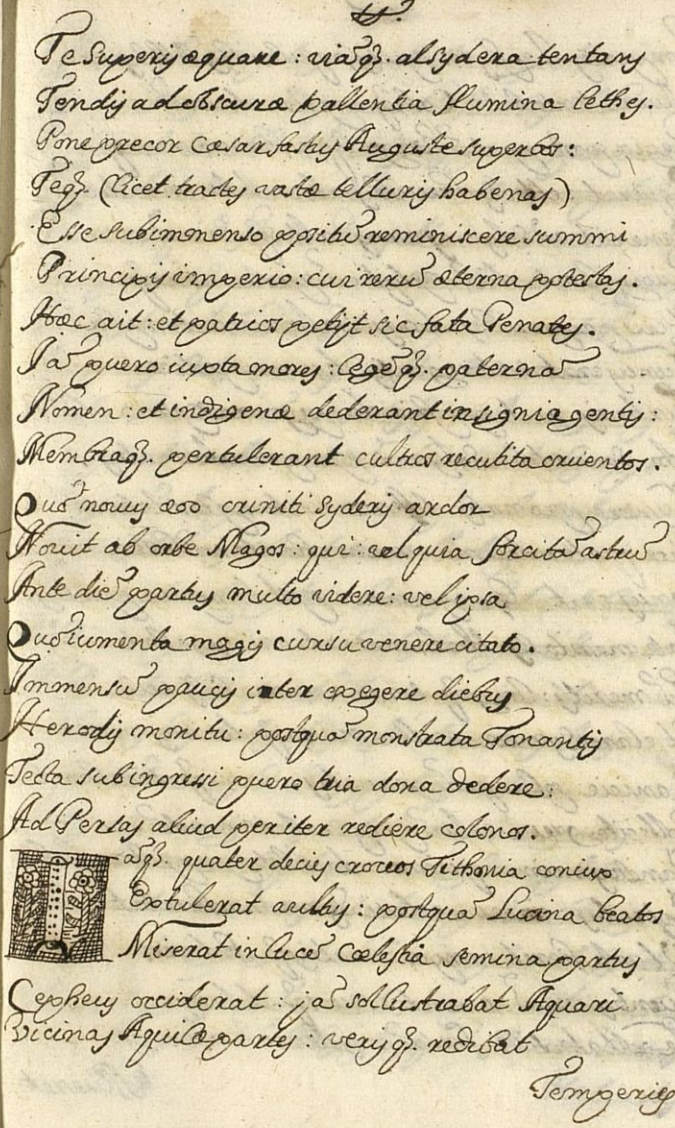 Te superis æquare: viãq3. al sydera tentans
Tendis ad obscuræ pallentia flumina lethes.
Pone precor Cæsar fastus Auguste superbos:
Teq3. (licet tractes vastæ telluris habenas)
Esse sub immenso positũ reminiscere summi
Principis imperio: cui rerũ æterna potestas.
Hæc ait: et patrios petijt sic fata Penates.
Iã puero iuxta mores: legẽq3. paternã
Nomen: et indigenæ dederant insignia gentis:
Membraq3. pertulerant cultros recutita cruentos.
Quõ novus æoo criniti syderis ardor
Novit ab orbe Magos: qui: vel quia forcitã astrũ
Ante diẽ partus multo videre: vel ipsa
Quõ iumenta magis cursu venere citato.
Immensũ paucis inter coegere diebus
Herodis monitu: postquã monstrata Tonantis
Tecta subingressi puero tria dona dedere:
Ad Persas aliud per iter rediere colonos.
Iãq3. quater decies croceos Tithonia coniux
Extulerat vultus: postquã Lucina beatos
Miserat in lucẽ Cælestia semina partus
Cepheus occiderat: jã sol lustrabat Aquari
Vicinas Aquilæ partes: verisq3. redibat
Temperies